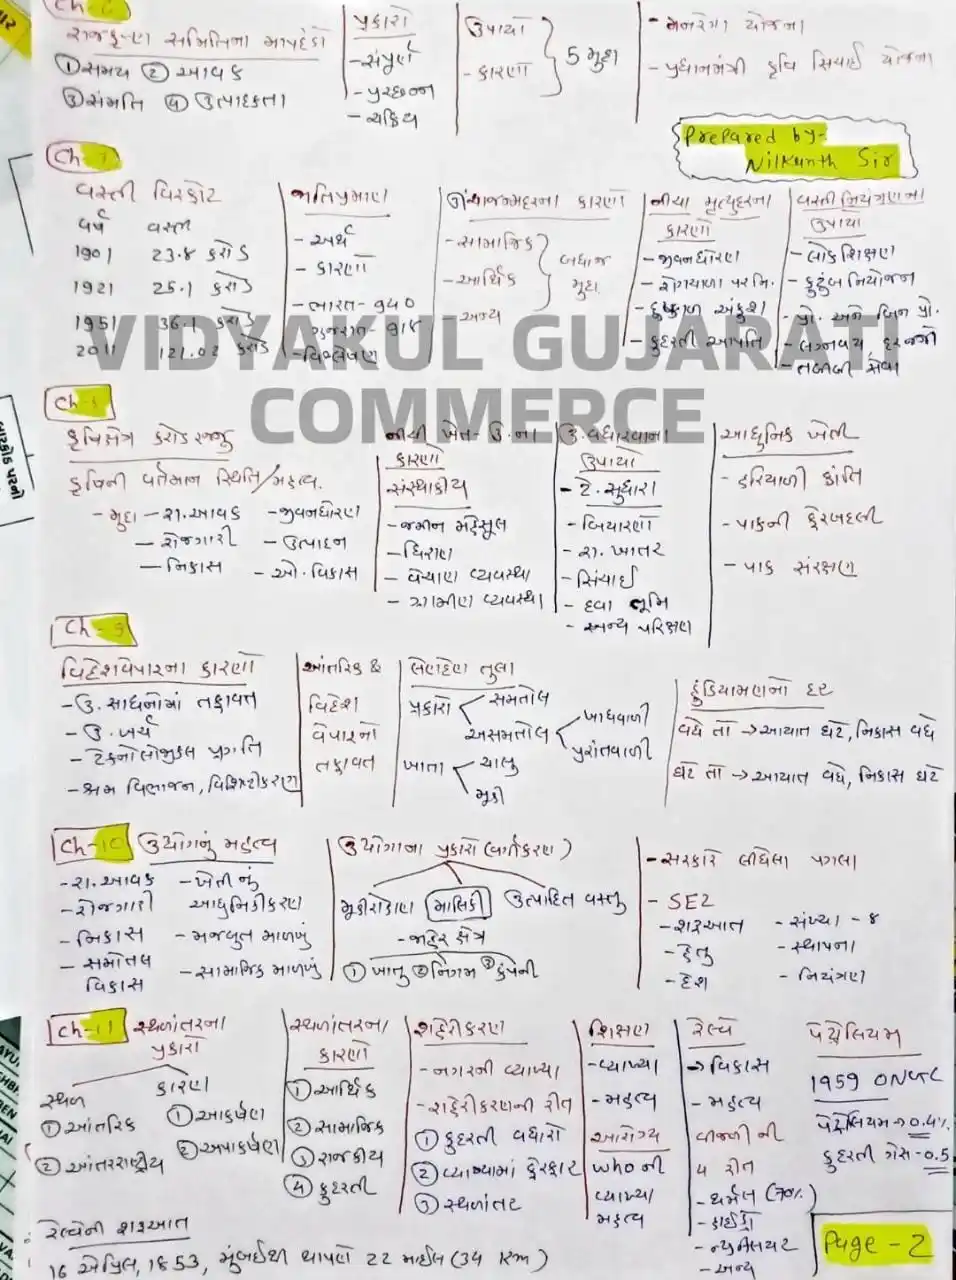 Ch - 6
રાજકૃષ્ણ સમિતિના માપદંડો
① સમય ② આવક
③ સંમતિ ④ ઉત્પાદકતા
પ્રકારો
- સંપૂર્ણ
- પ્રચ્છન્ન
- ચક્રિય
ઉપાયો
- કારણો
5 મુદ્દા
- મનરેગા યોજના
- પ્રધાનમંત્રી કૃષિ સિંચાઈ યોજના
Prepared by-
Nilkunth Sir
Ch - 7
વસ્તી વિસ્ફોટ
વર્ષ વસ્તી
1901 23.8 કરોડ
1921 25.1 કરોડ
1951 36.1 કરોડ
2011 121.02 કરોડ
જાતિપ્રમાણ
- અર્થ
- કારણો
- ભારત - 940
ગુજરાત - 918
- વિશ્લેષણ
ઊંચા જન્મદરના કારણો
- સામાજિક
- આર્થિક
- અન્ય
બધાજ
મુદ્દા
નીચા મૃત્યુદરના
કારણો
- જીવનધોરણ
- રોગચાળા પર નિ.
- દુષ્કાળ અંકુશ
- કુદરતી આપત્તિ
વસ્તી નિયંત્રણના
ઉપાયો
- લોકશિક્ષણ
- કુટુંબ નિયોજન
- પ્રો. અને બિન પ્રો.
- લગ્નવય દરજ્જો
- તબીબી સેવા
VIDYAKUL GUJARATI
COMMERCE
Ch - 8
કૃષિક્ષેત્ર કરોડરજ્જુ
કૃષિની વર્તમાન સ્થિતિ/મહત્વ.
- મુદ્દા - રા. આવક - જીવનધોરણ
- રોજગારી - ઉત્પાદન
- નિકાસ - ઔ. વિકાસ
નીચી ખેત - ઉ. ના
કારણો
સંસ્થાકીય
- જમીન મહેસૂલ
- ધિરાણ
- વેચાણ વ્યવસ્થા
- ગ્રામીણ વ્યવસ્થા
ઉ. વધારવાના
ઉપાયો
- ટે. સુધારા
- બિયારણો
- રા. ખાતર
- સિંચાઈ
- દવા ભૂમિ
- અન્ય પરિક્ષણ
આધુનિક ખેતી
- હરિયાળી ક્રાંતિ
- પાકની ફેરબદલી
- પાક સંરક્ષણ
Ch - 9
વિદેશવેપારના કારણો
- ઉ. સાધનોમાં તફાવત
- ઉ. ખર્ચ
- ટેક્નોલોજીકલ પ્રગતિ
- શ્રમ વિભાજન, વિશિષ્ટીકરણ
આંતરિક &
વિદેશ
વેપારનો
તફાવત
લેણદેણ તુલા
પ્રકારો સમતોલ
અસમતોલ ખાધવાળી
પુરાંતવાળી
ખાતા ચાલુ
મૂડી
હૂંડિયામણનો દર
વધે તો → આયાત ઘટે, નિકાસ વધે
ઘટે તો → આયાત વધે, નિકાસ ઘટે
Ch - 10 ઉદ્યોગનું મહત્વ
- રા. આવક - ખેતીનું
- રોજગારી આધુનિકીકરણ
- નિકાસ - મજબૂત માળખું
- સમતોલ - સામાજિક માળખું
વિકાસ
ઉદ્યોગના પ્રકારો (વર્ગીકરણ)
મૂડીરોકાણ માલિકી ઉત્પાદિત વસ્તુ
- જાહેર ક્ષેત્ર
① ખાતુ ② નિગમ ③ કંપની
- સરકારે લીધેલા પગલા
- SEZ
- શરૂઆત - સંખ્યા - 8
- હેતુ - સ્થાપના
- દેશ - નિયંત્રણ
Ch - 11 સ્થળાંતરના
પ્રકારો
સ્થળ કારણ
① આંતરિક ① આકર્ષણ
② આંતરરાષ્ટ્રીય ② અપાકર્ષણ
સ્થળાંતરના
કારણો
① આર્થિક
② સામાજિક
③ રાજકીય
④ કુદરતી
શહેરીકરણ
- નગરની વ્યાખ્યા
- શહેરીકરણની રીત
① કુદરતી વધારો
② વ્યાખ્યામાં ફેરફાર
③ સ્થળાંતર
શિક્ષણ
- વ્યાખ્યા
- મહત્વ
આરોગ્ય
WHO ની
વ્યાખ્યા
મહત્વ
રેલ્વે
→ વિકાસ
- મહત્વ
વીજળી ની
૫ રીત
- થર્મલ (70%)
- હાઈડ્રો
- ન્યુક્લિયર
- અન્ય
પેટ્રોલિયમ
1959 ONGC
પેટ્રોલિયમ → 0.4%
કુદરતી ગેસ - 0.5
રેલ્વેની શરૂઆત
16 એપ્રિલ, 1853, મુંબઈથી થાણે 22 માઈલ (34 Km)
Page - 2